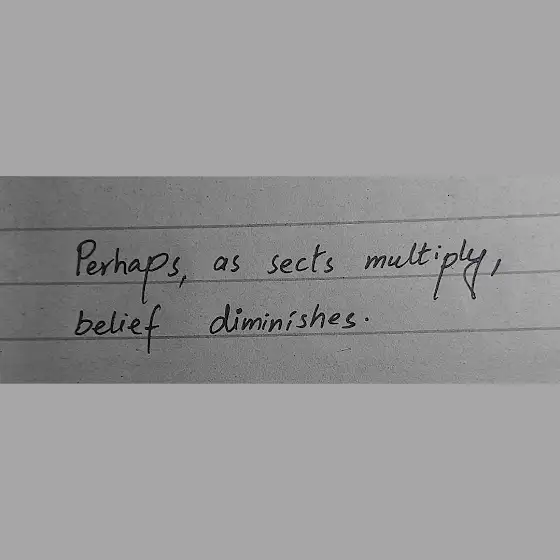 Perhaps, as sects multiply,
belief diminishes.